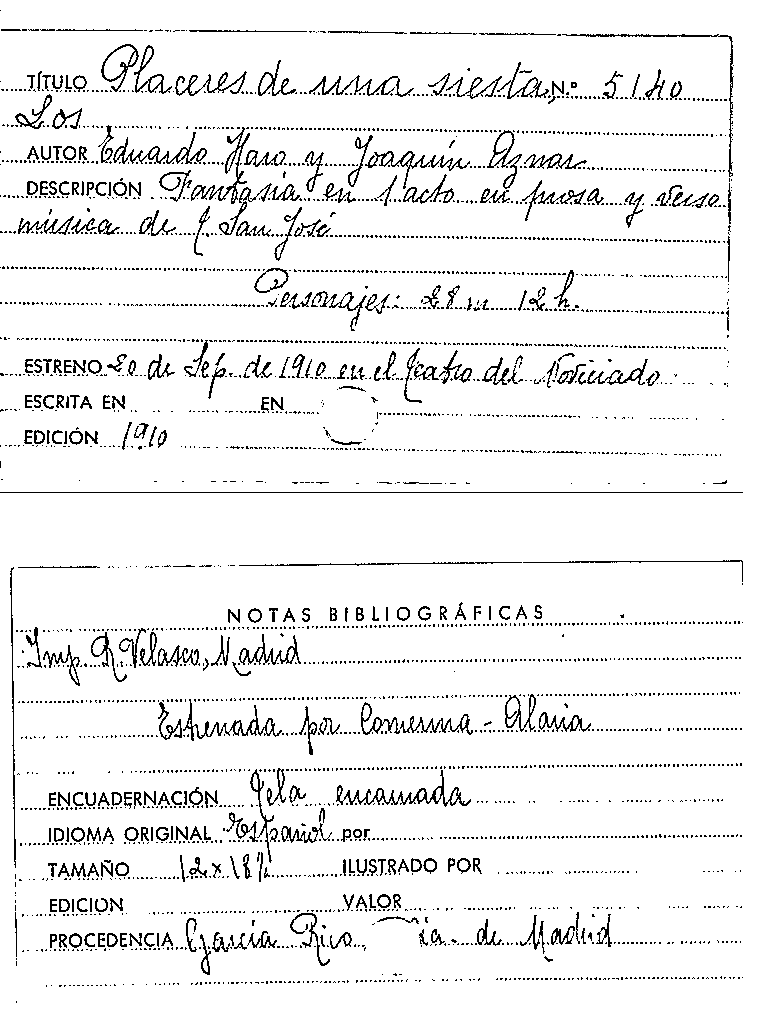 TÍTULO Placeres de una siesta, N.º 5140
Los
AUTOR Eduardo Haro y Joaquín Aznar
DESCRIPCIÓN Fantasía en 1 acto en prosa y verso
música de T. San José
Personajes: 28 m 12 h.
ESTRENO 20 de Sep. de 1910 en el Teatro del Noviciado
ESCRITA EN EN
EDICIÓN 1910
NOTAS BIBLIOGRÁFICAS
Imp. R. Velasco, Madrid
Estrenada por Comerma - Alaria
ENCUADERNACIÓN Tela encarnada
IDIOMA ORIGINAL Español por
TAMAÑO 12 x 18½ ILUSTRADO POR
EDICION VALOR
PROCEDENCIA García Rico, de Madrid